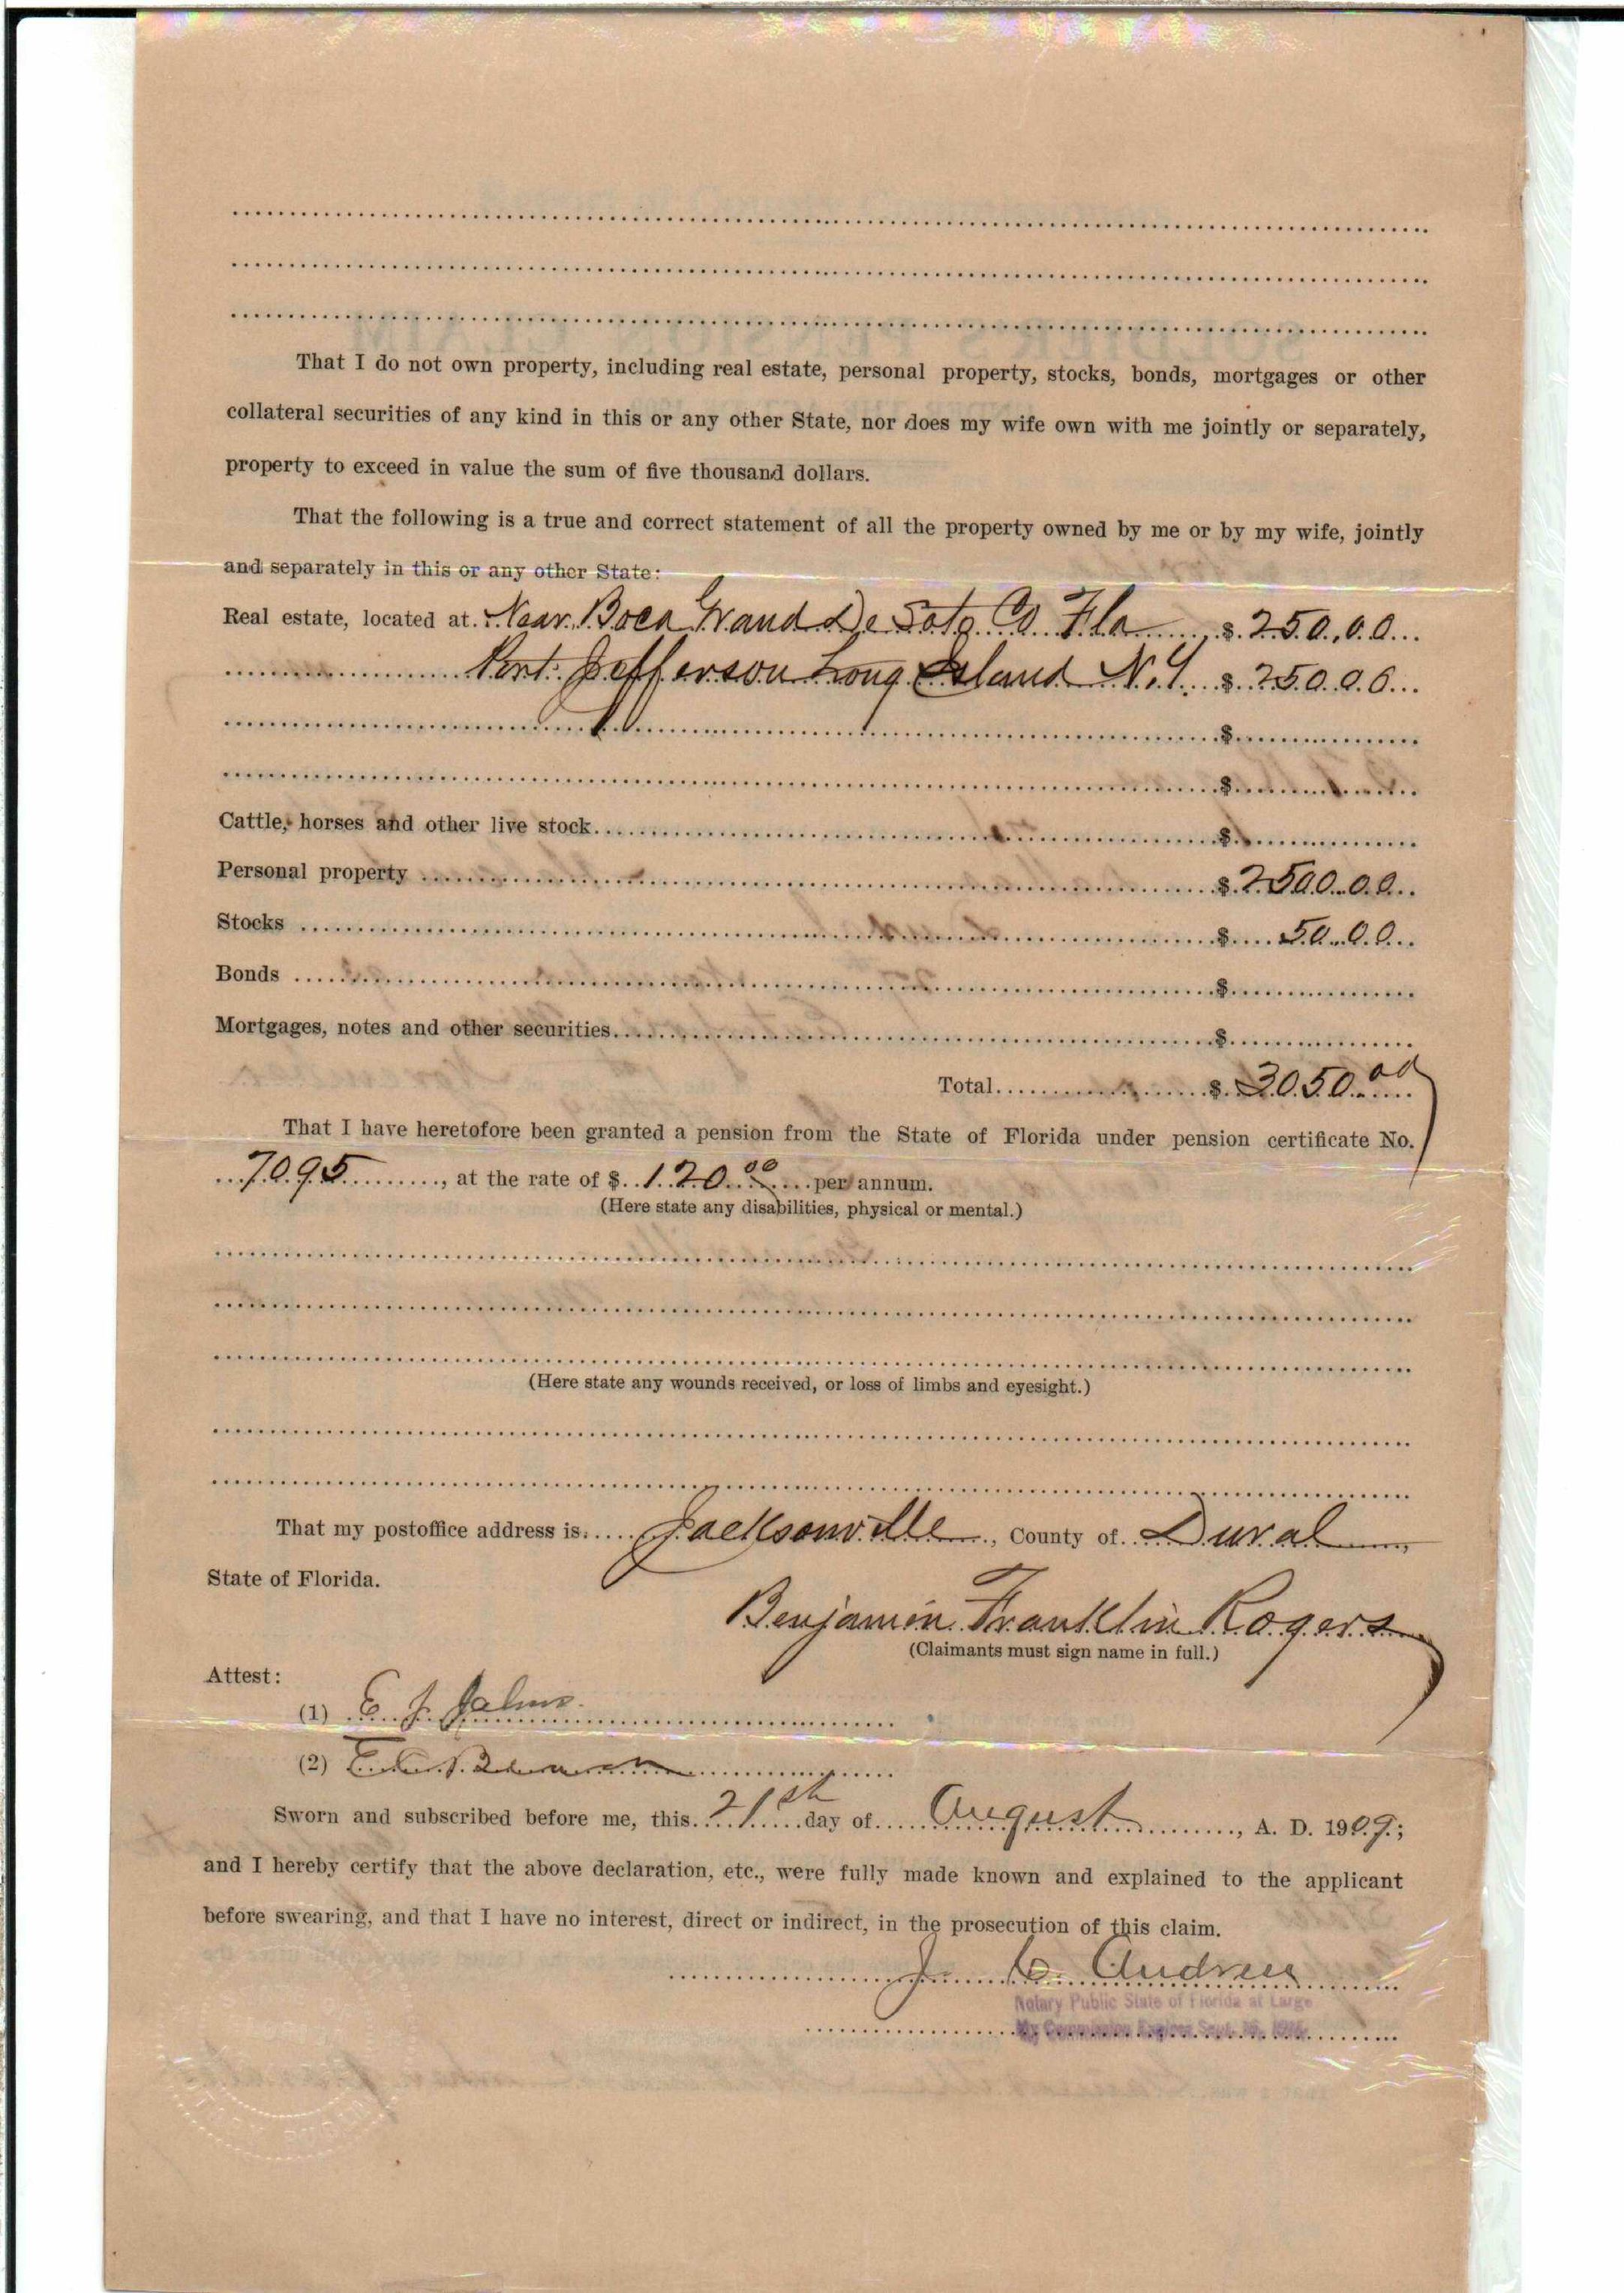 That I do not own property, including real estate, personal property, stocks, bonds, mortgages or other
collateral securities of any kind in this or any other State, nor does my wife own with me jointly or separately,
property to exceed in value the sum of five thousand dollars.
That the following is a true and correct statement of all the property owned by me or by my wife, jointly
and separately in this or any other State:
Real estate, located at Near Boca Grand De Soto Co Fla $ 250.00
Port Jefferson Long Island N.Y. $ 250 00
$
$
Cattle, horses and other live stock $
Personal property $ 2500.00
Stocks $ 50.00
Bonds $
Mortgages, notes and other securities $
Total $ 3050.00
That I have heretofore been granted a pension from the State of Florida under pension certificate No.
7095, at the rate of $ 120.00 per annum.
(Here state any disabilities, physical or mental.)
(Here state any wounds received, or loss of limbs and eyesight.)
That my postoffice address is Jacksonville, County of Duval,
State of Florida.
Benjamin Franklin Rogers
(Claimants must sign name in full.)
Attest:
(1) E. J.
(2) E. C.
Sworn and subscribed before me, this 21st day of August, A. D. 1909;
and I hereby certify that the above declaration, etc., were fully made known and explained to the applicant
before swearing, and that I have no interest, direct or indirect, in the prosecution of this claim.
J. C.
Notary Public State of Florida at Large
My Commission Expires Sept.